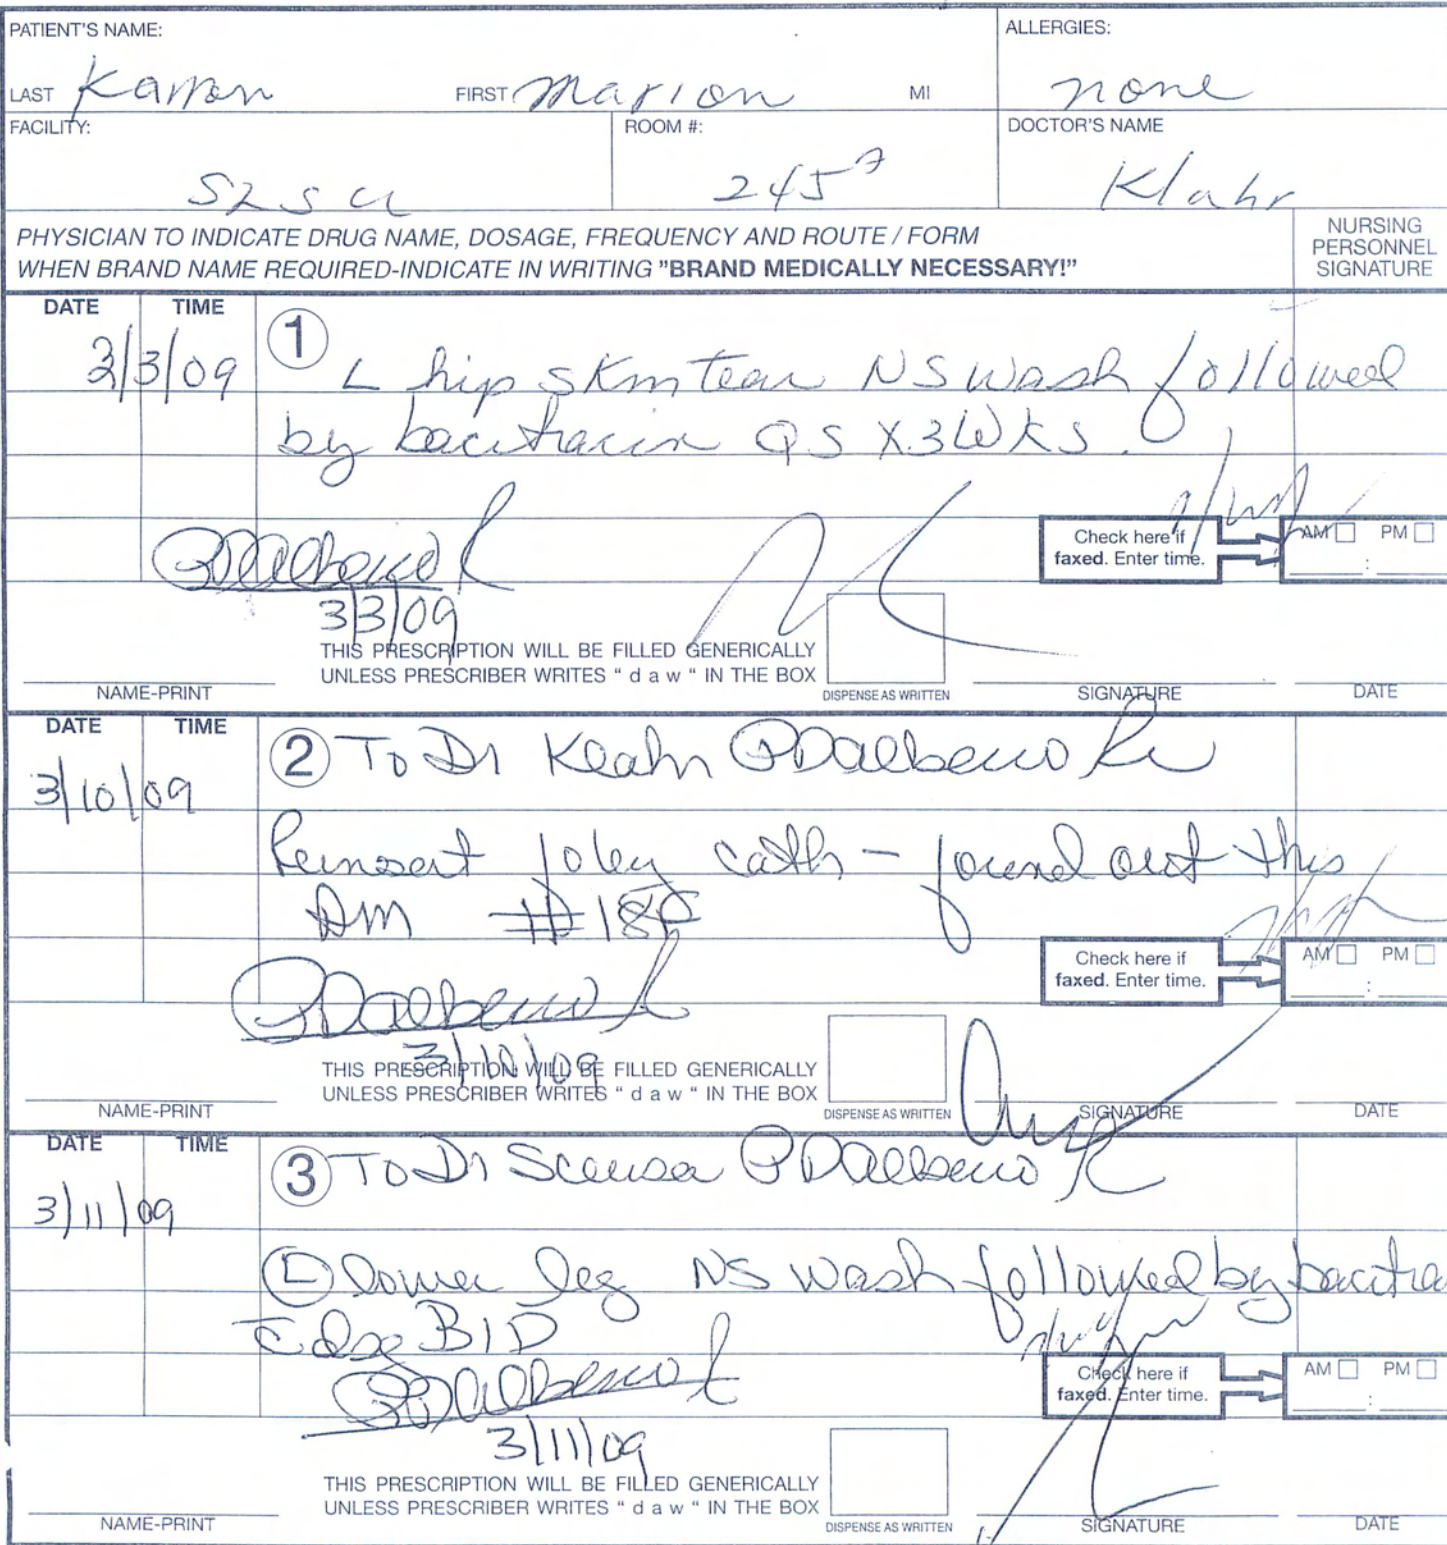 PATIENT'S NAME: ALLERGIES:
LAST Karron FIRST Marion MI none
FACILITY: ROOM #: DOCTOR'S NAME
SLSU 245 Klahr
PHYSICIAN TO INDICATE DRUG NAME, DOSAGE, FREQUENCY AND ROUTE / FORM
WHEN BRAND NAME REQUIRED-INDICATE IN WRITING "BRAND MEDICALLY NECESSARY!"
NURSING
PERSONNEL
SIGNATURE
DATE TIME
3/3/09 1 L hip skin tear NS wash followed
by bacitracin QS X3WKS.
Check here if
faxed. Enter time.
AM PM
:
PDalbeno R
3/3/09
THIS PRESCRIPTION WILL BE FILLED GENERICALLY
UNLESS PRESCRIBER WRITES " d a w " IN THE BOX
NAME-PRINT DISPENSE AS WRITTEN SIGNATURE DATE
DATE TIME
3/10/09 2 To Dr Klahr PDalbeno Rn
Reinsert foley cath - found out this
AM #18F
Check here if
faxed. Enter time.
AM PM
:
PDalbeno R
3/10/09
THIS PRESCRIPTION WILL BE FILLED GENERICALLY
UNLESS PRESCRIBER WRITES " d a w " IN THE BOX
NAME-PRINT DISPENSE AS WRITTEN SIGNATURE DATE
DATE TIME
3/11/09 3 To Dr Sceusa PDalbeno R
L lower leg NS wash followed by bacitra
c dsg BID
Check here if
faxed. Enter time.
AM PM
:
PDalbeno R
3/11/09
THIS PRESCRIPTION WILL BE FILLED GENERICALLY
UNLESS PRESCRIBER WRITES " d a w " IN THE BOX
NAME-PRINT DISPENSE AS WRITTEN SIGNATURE DATE